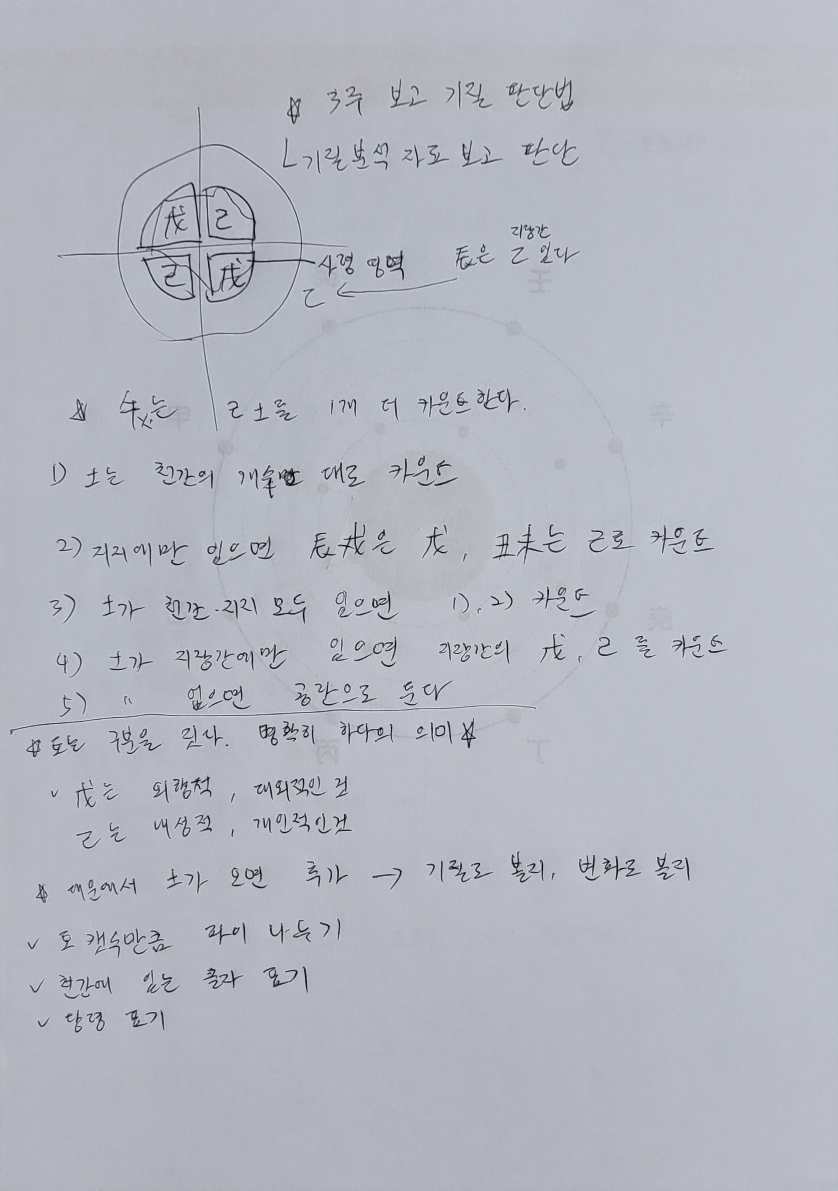 ☆ 3주 보고 기질 판단법
ㄴ기질분석 자료 보고 판단
戊 己
己 戊
사령 영역
지장간
辰은 乙 있다
乙
☆ 는 己土를 1개 더 카운트한다.
1) 土는 천간의 개수 대로 카운트
2) 지지에만 있으면 辰戌은 戊, 丑未는 己로 카운트
3) 土가 천간·지지 모두 있으면 1), 2) 카운트
4) 土가 지장간에만 있으면 지장간의 戊, 己를 카운트
5) 〃 없으면 공란으로 둔다
☆ 토는 구분을 짓다. 명확히 하다의 의미 ☆
✓ 戊는 외향적, 대외적인 것
己는 내성적, 개인적인것
☆ 대운에서 土가 오면 추가 → 기질로 볼지, 변화로 볼지
✓ 토 갯수만큼 파이 나누기
✓ 천간에 있는 글자 표기
✓ 당령 표기
壬
辛
庚
丁
丙